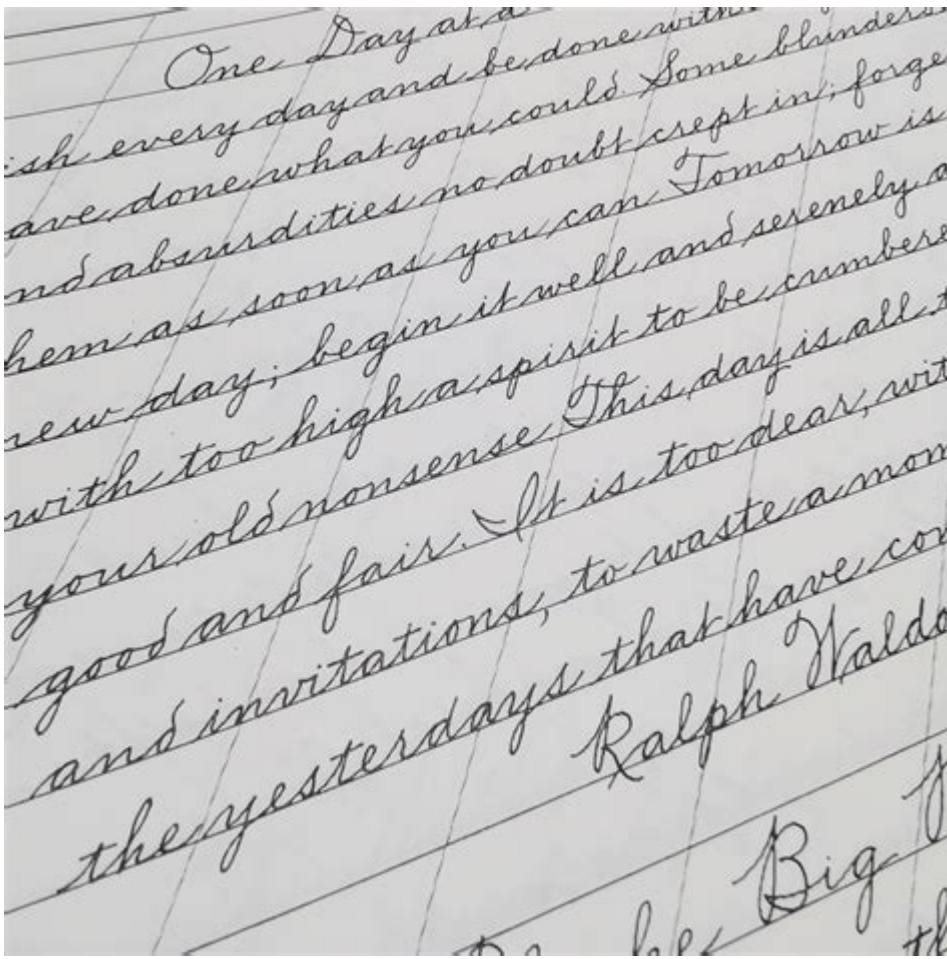 One Day at a
ish every day and be done with
ave done what you could. Some blunders
nd absurdities no doubt crept in; forge
hem as soon as you can Tomorrow is
new day; begin it well and serenely a
with too high a spirit to be cumbere
your old nonsense. This day is all
good and fair. It is too dear, wit
and invitations, to waste a mom
the yesterdays that have con
Ralph Waldo
Big
th